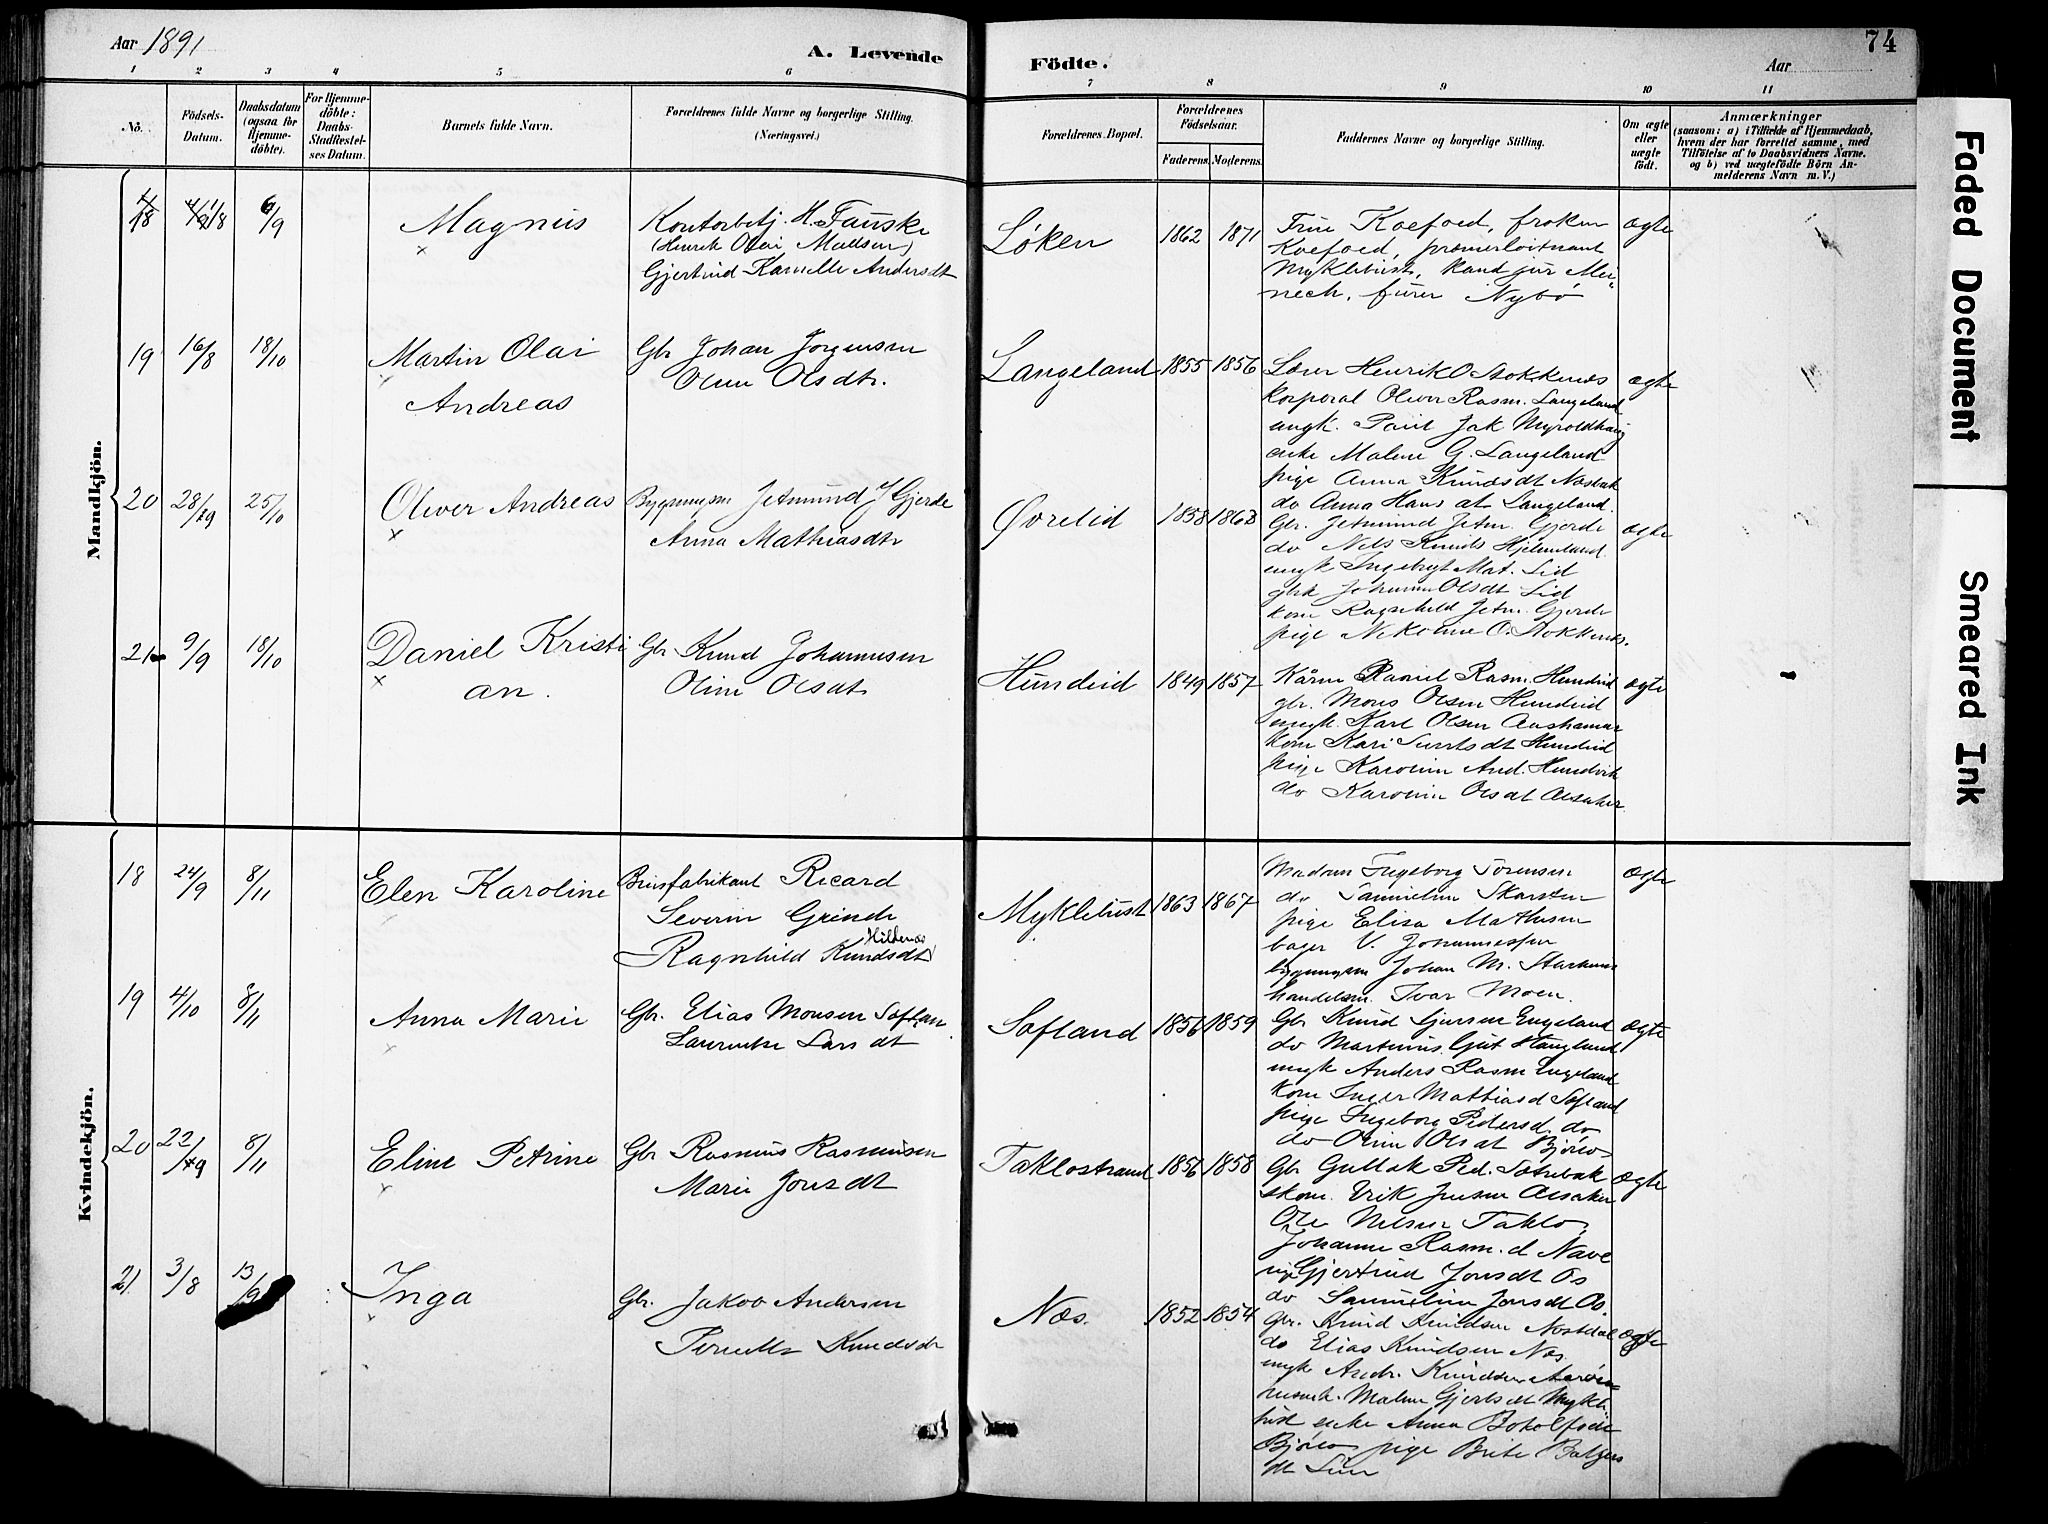 Aar 1891
A. Levende Födte.
Aar
74
1 2 3 4 5 6 7 8 9 10 11
No.
Födsels-
Datum.
Daabsdatum
(ogsaa for
Hjemme-
döbte).
For Hjemme-
döbte:
Daabs-
Stadfæstel-
ses Datum.
Barnets fulde Navn.
Forældrenes fulde Navne og borgerlige Stilling.
(Næringsvei.)
Forældrenes Bopæl.
Forældrenes
Födselsaar.
Faderens. Moderens.
Faddernes Navne og borgerlige Stilling.
Om ægte
eller
uægte
födt.
Anmærkninger
(saasom: a) i Tilfælde af Hjemmedaab,
hvem der har forrettet samme, med
Tilföielse af to Daabsvidners Navne.
og b) ved uægtefödte Börn An-
melderens Navn m. V.)
Mandkjön.
18 1/8 6/9
Magnus
Kontorbetj. H. Fauske
(Henrik Olai Madsen)
Gjertrud Kamelle Andersdt
Løken 1862 1871
Frue Koefoed, frøken
Koefoed, premierløitnant
Myklebust, kand jur Mei-
nech, furer Nybø
ægte
19 16/8 18/10
Martin Olai
Andreas
Gbr Johan Jørgensen
Oline Olsdtr.
Langeland 1855 1856
Lærer Henrik O Stokkenæs
Korporal Oliver Rasm. Langeland
ungk. Paul Jak Myroldhaug
enke Malene G. Langeland
pige Anna Knudsdt Nosbak
do Anna Hans dt Langeland.
ægte
20 28/9 25/10
Oliver Andreas
Bygmgsm Jetmund J Gjerde
Anna Mathiasdtr
Øvrelid 1858 1863
Gbr. Jetmund Jetm. Gjerde
do Nils Knuds Hjelmeland
ungk Ingebrgt Mat. Lid
gbk Johanne Olsdt Lid
kone Ragnhild Jetm. Gjerde
pige Nikoline O. Stokkenes.
ægte
21 9/9 18/10
Daniel Kristi
an.
Gbr Knud Johannesen
Oline Olsdt
Hundeid 1849 1857
Kårm Daniel Rasm. Hundeid
gbr. Mons Olsen Hundeid
ungk. Karl Olsen Aashamar
kone Kari Sivertsdt Hundeid
pige Karoline And. Hundvik
do Karoline Olsdt Alsaker
ægte
Kvindekjön.
18 24/9 8/11
Elen Karoline
Brusfabrikant Ricard
Severin Grindr
Hildenæs
Ragnhild Knudsdt
Myklebust 1863 1867
Madam Ingeborg Sørensen
do Samueline Skarsten
pige Elisa Mathisen
bager V. Johannessen
bygmgsm Johan M. Starheim
handelsm. Ivar Moen.
ægte
19 4/10 8/11
Anna Marie
Gbr. Elias Monsen Sofland
Laurentse Larsdt
Sofland 1856 1859
Gbr Knud Gjersen Engeland
do Martinus Gut Haugland
ungk Anders Rasm Engeland
kone Inger Mathiasd Sofland
pige Ingeborg Pedersd. do
do Oline Olsdt Bjørlo
ægte
20 22/9 8/11
Eline Petrine
Gbr Rasmus Rasmusen
Marie Jonsdt
Taklostrand 1856 1858
Gbr Gullak Ped. Sætrebak
skom. Erik Jensen Alsaker
Ole Nilsen Taklo
Johanne Rasm. d Nave
pige Gjertrud Jonsdt Os
do Samueline Jonsdt Os.
ægte
21 3/8 13/9
Inga
Gbr. Jakob Andersen
Pernille Knudsdr
Næs. 1852 1854
Gbr. Knud Knudsen Nostdal
do Elias Knudsen Næs.
ungk Andr. Knudsen
husmk. Malene Gjertsdt Mykle
bust enke Anna
Bjørlo pige Brite Balzers
dt Lien
ægte
Faded Document
Smeared Ink